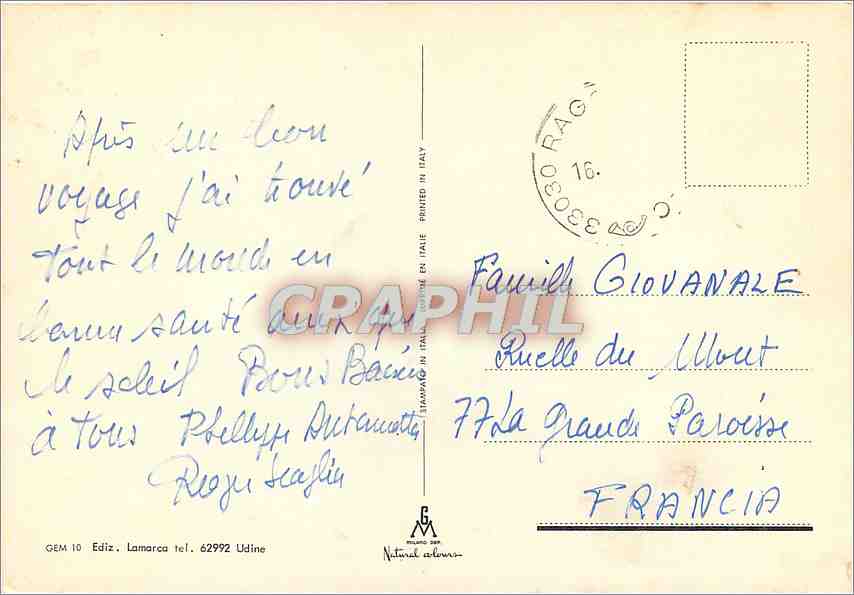 Après un bon
voyage j'ai trouvé
tout le monde en
bonne santé ainsi que
le soleil Bons Baisers
à tous Phillyppe Antoinette
Roger Scaglia
STAMPATO IN ITALIA IMPRIMÉ EN ITALIE PRINTED IN ITALY
GEM 10 Ediz. Lamarca tel. 62992 Udine
GM
MILANO DEP.
Natural colours
33030 RAG
16.
Famille GIOVANALE
Ruelle du Mont
77 La Grande Paroisse
FRANCIA
CPAPHIL